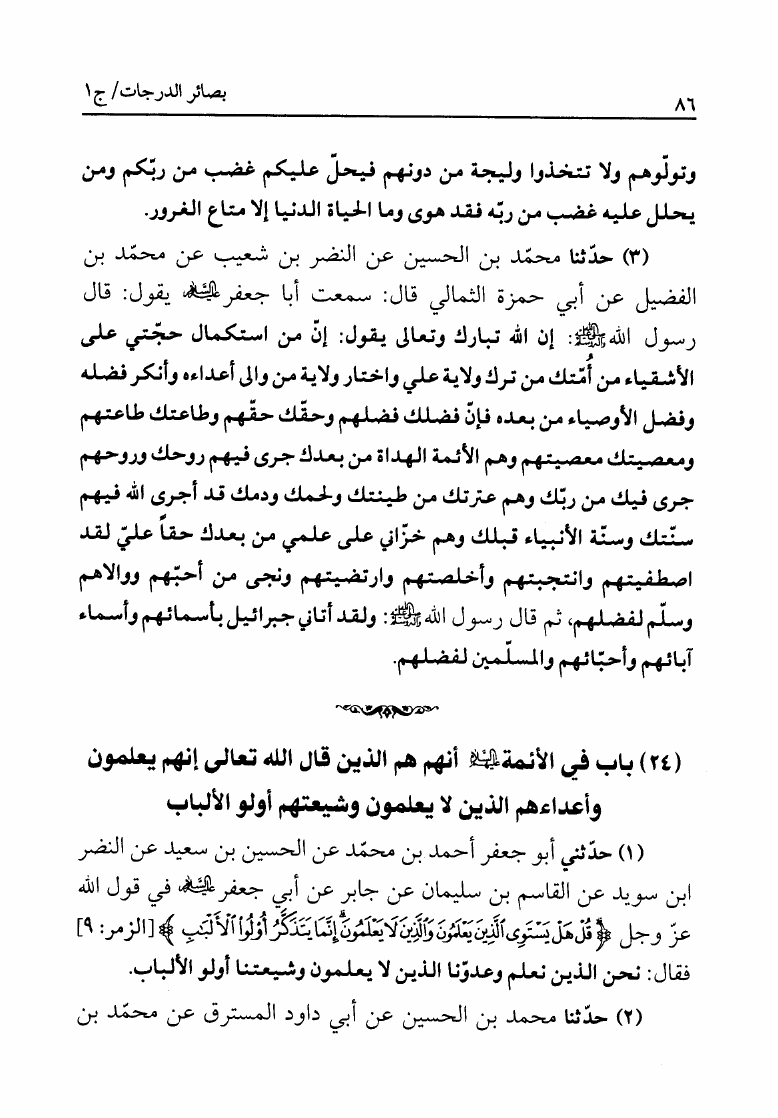 ٨٦
بصائر الدرجات/ ج١
وتولّوهم ولا تتخذوا وليجة من دونهم فيحلّ عليكم غضب من ربّكم ومن
يحلل عليه غضب من ربّه فقد هوى وما الحياة الدنيا إلا متاع الغرور.
(٣) حدّثنا محمّد بن الحسين عن النضر بن شعيب عن محمّد بن
الفضيل عن أبي حمزة الثمالي قال: سمعت أبا جعفر عليه السلام يقول: قال
رسول الله صلى الله عليه وآله: إن الله تبارك وتعالى يقول: إنّ من استكمال حجّتي على
الأشقياء من أُمّتك من ترك ولاية علي واختار ولاية من والى أعداءه وأنكر فضله
وفضل الأوصياء من بعده فإنّ فضلك فضلهم وحقّك حقّهم وطاعتك طاعتهم
ومعصيتك معصيتهم وهم الأئمة الهداة من بعدك جرى فيهم روحك وروحهم
جرى فيك من ربّك وهم عترتك من طينتك ولحمك ودمك قد أجرى الله فيهم
سنّتك وسنّة الأنبياء قبلك وهم خزّاني على علمي من بعدك حقاً عليّ لقد
اصطفيتهم وانتجبتهم وأخلصتهم وارتضيتهم ونجى من أحبّهم ووالاهم
وسلّم لفضلهم، ثم قال رسول الله صلى الله عليه وآله: ولقد أتاني جبرائيل بأسمائهم وأسماء
آبائهم وأحبّائهم والمسلّمين لفضلهم.
(٢٤) باب في الأئمة عليهم السلام أنهم هم الذين قال الله تعالى إنهم يعلمون
وأعداءهم الذين لا يعلمون وشيعتهم أولو الألباب
(١) حدّثني أبو جعفر أحمد بن محمّد عن الحسين بن سعيد عن النضر
ابن سويد عن القاسم بن سليمان عن جابر عن أبي جعفر عليه السلام في قول الله
عزّ وجل ﴿قُلْ هَلْ يَسْتَوِى ٱلَّذِينَ يَعْلَمُونَ وَٱلَّذِينَ لَا يَعْلَمُونَ إِنَّمَا يَتَذَكَّرُ أُوْلُواْ ٱلْأَلْبَٰبِ﴾ [الزمر: ٩]
فقال: نحن الذين نعلم وعدوّنا الذين لا يعلمون وشيعتنا أولو الألباب.
(٢) حدّثنا محمد بن الحسين عن أبي داود المسترق عن محمّد بن